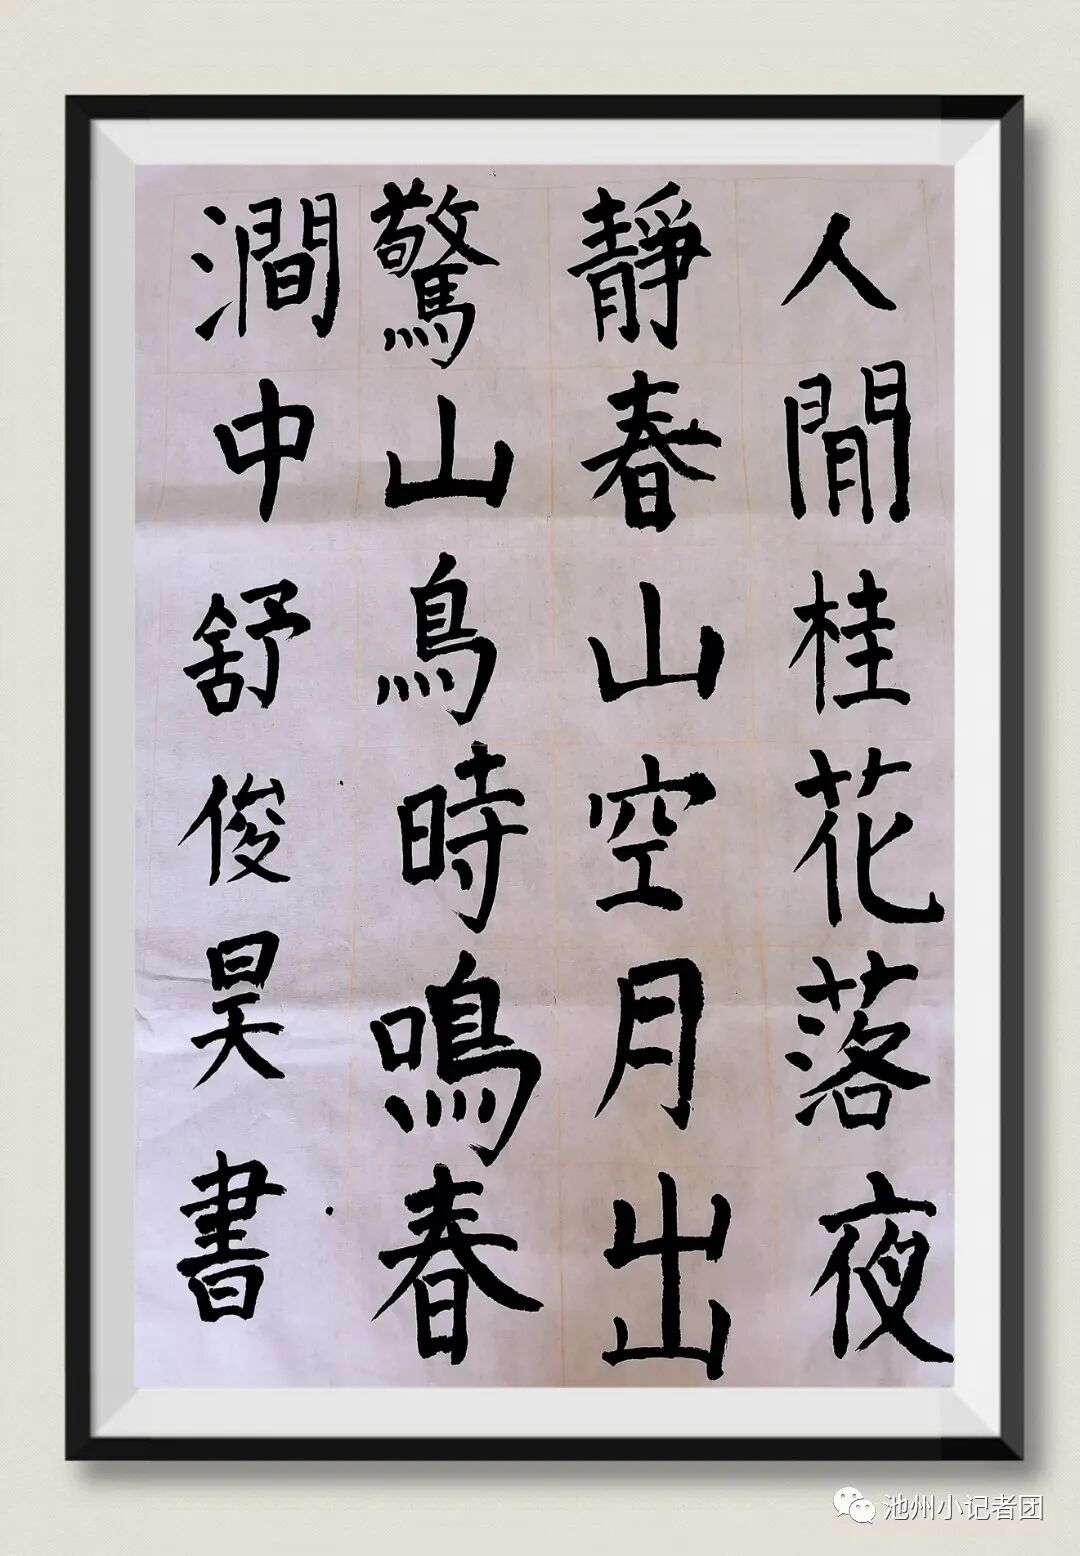 人閒桂花落夜
靜春山空月出
驚山鳥時鳴春
澗中舒俊昊書
池州小记者团